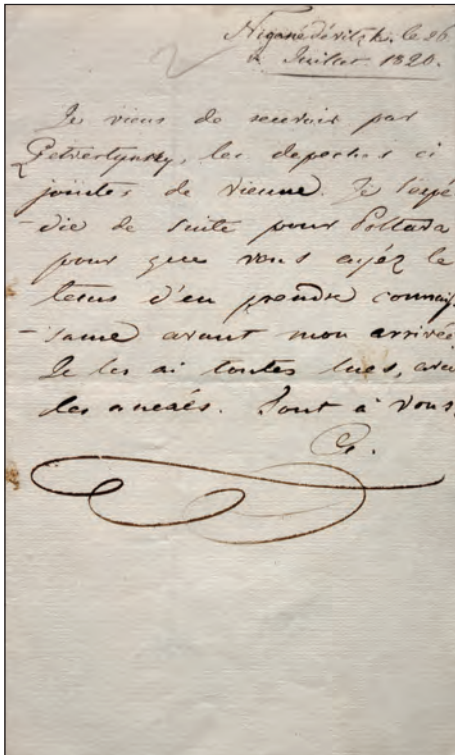 le 26
Juillet 1820.
Je viens de recevoir par
les depeches ci
jointes de Vienne. Je l'expé
-die de suite pour Poltava
pour que vous ayéz le
tems d'en prendre connais-
-sance avant mon arrivée
Je les ai toutes lues, avec
les anexés. Tout à vous.